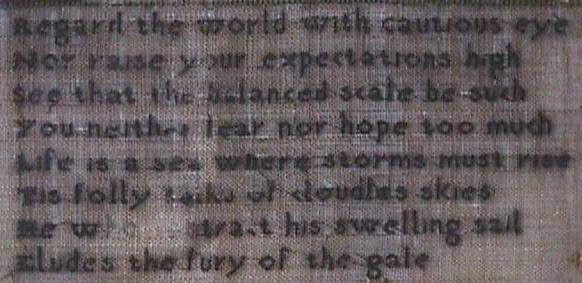 Regard the world with cautious eye
Nor raise your expectations high
See that the balanced scale be such
You neither fear nor hope too much
Life is a sea where storms must rise
Tis folly talks of cloudles skies
He his swelling sail
Eludes the fury of the gale